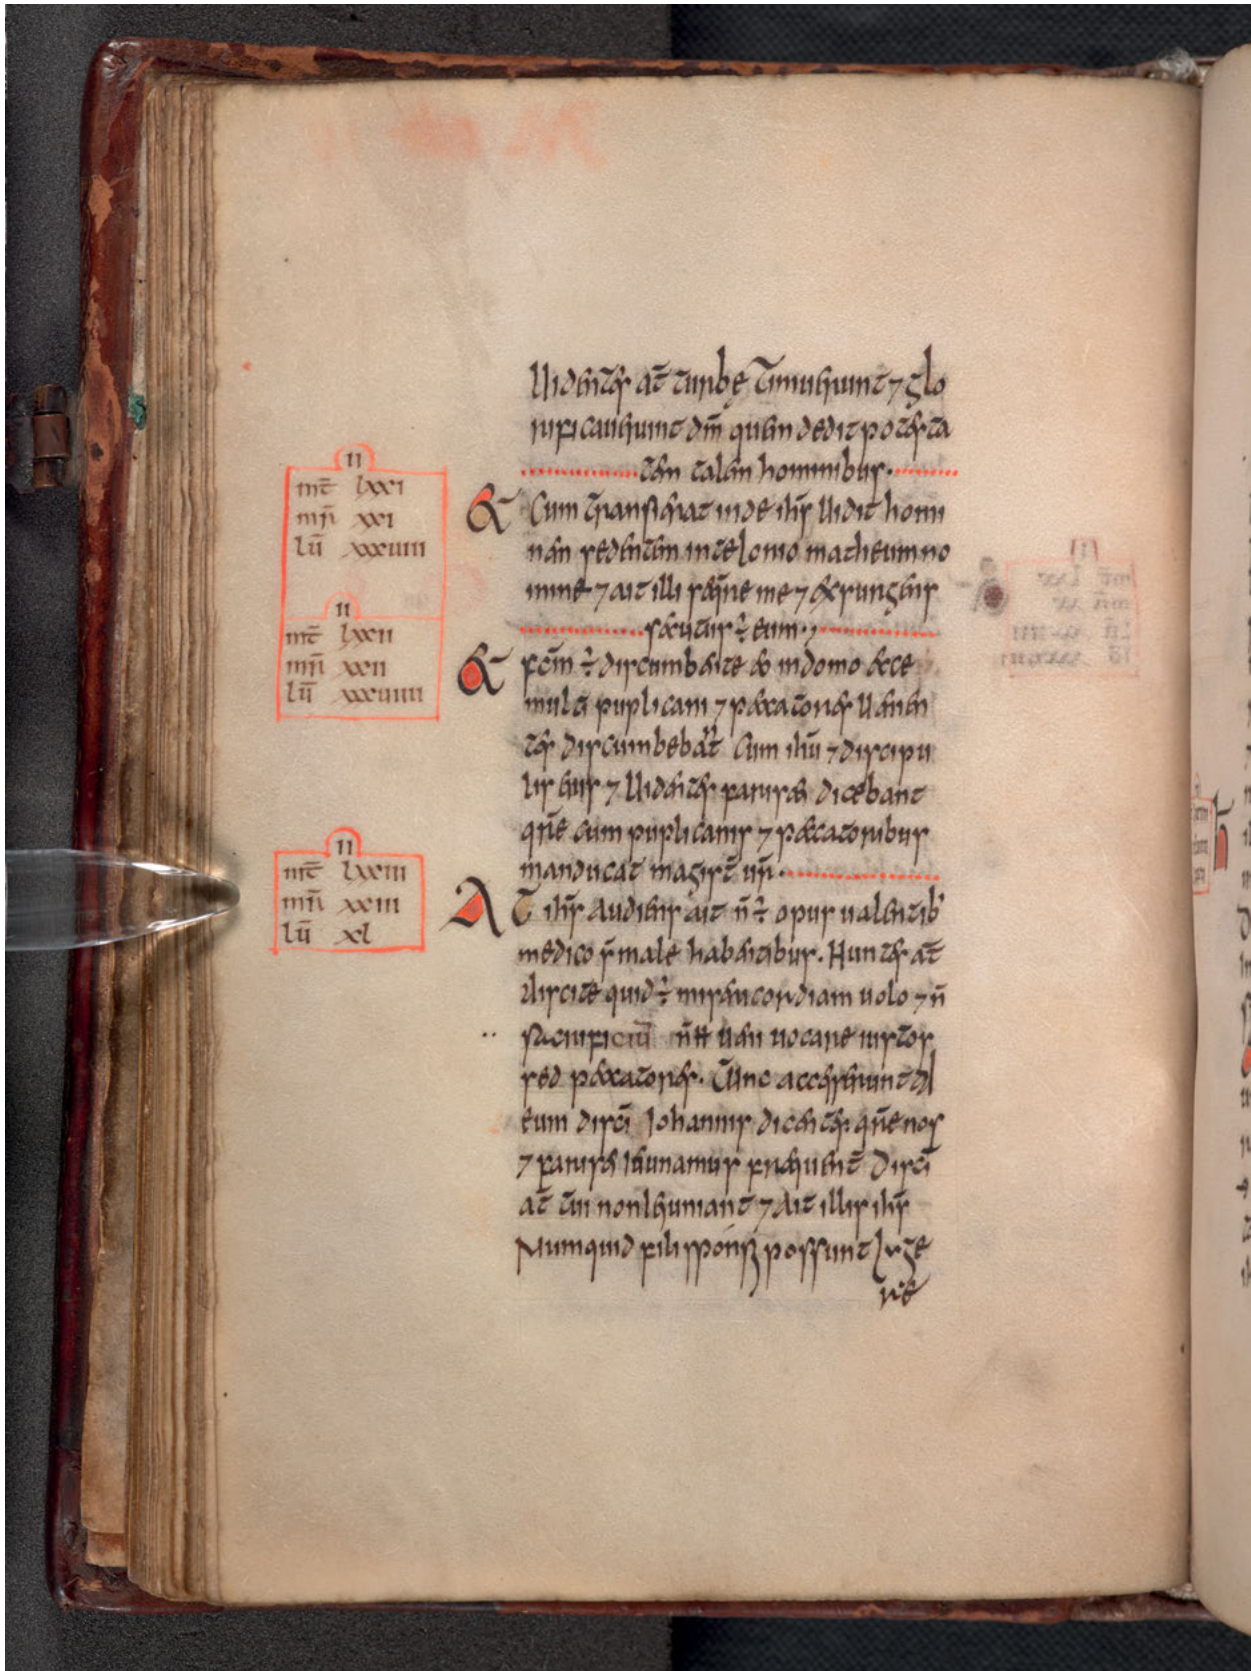 II
mt̄ lxxi
mr̄ xxi
lū xxxuiii
II
mt̄ lxxii
mr̄ xxii
lū xxxuiiii
II
mt̄ lxiii
mr̄ xxiii
lū xl
Uidentes at̄ turbę timuerunt ⁊ glo
rificauerunt dm̄ quem dedit potesta
tem talem hominibus
Et Cum transiret inde ihs̄ Uidit homi
nem sedentem in teloneo matheum no
mine ⁊ ait illi seq̄re me ⁊ exsurgens
secutus ÷ eum
Et fcm̄ ÷ discumbente eo in domo ecce
multi puplicani ⁊ peccatores Uenien
tes discumbebat̄ Cum ihū ⁊ discipu
lis eius ⁊ Uidentes farissei dicebant
qr̄e cum puplicanis ⁊ peccatoribus
manducat magist̄ ur̄
At ihs̄ Audiens ait n̄ ÷ opus ualentib'
medico s̄ male habentibus. Euntes at̄
discite quid ÷ missericordiam uolo ⁊ n̄
sacrificiū n̄ ueni uocare iustos
sed peccatores. Tunc accesserunt ad
eum disci Iohannis dicentes qr̄e nos
⁊ farissei ieiunamus frequent̄ Disci
at̄ tui non ieiunant ⁊ Ait illis ihs̄
Numquid fili sponsi possunt luge
re